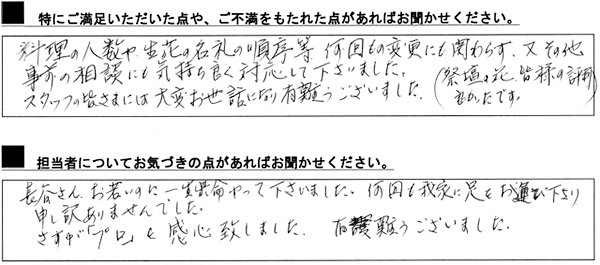 ■ 特にご満足いただいた点や、ご不満をもたれた点があればお聞かせください。
料理の人数や、生花の名札の順序等 何回もの変更にも関わらず、又その他
事前の相談にも気持ち良く対応して下さいました。
スタッフの皆さまには大変お世話になり有難うございました。(祭壇の花、皆様の評判
良かったです。
■ 担当者についてお気づきの点があればお聞かせください。
長谷さん、お若いのに一生懸命やって下さいました。何回も我家に足をお運び下さり
申し訳ありませんでした。
さすが「プロ」と感心致しました。 有難うございました。